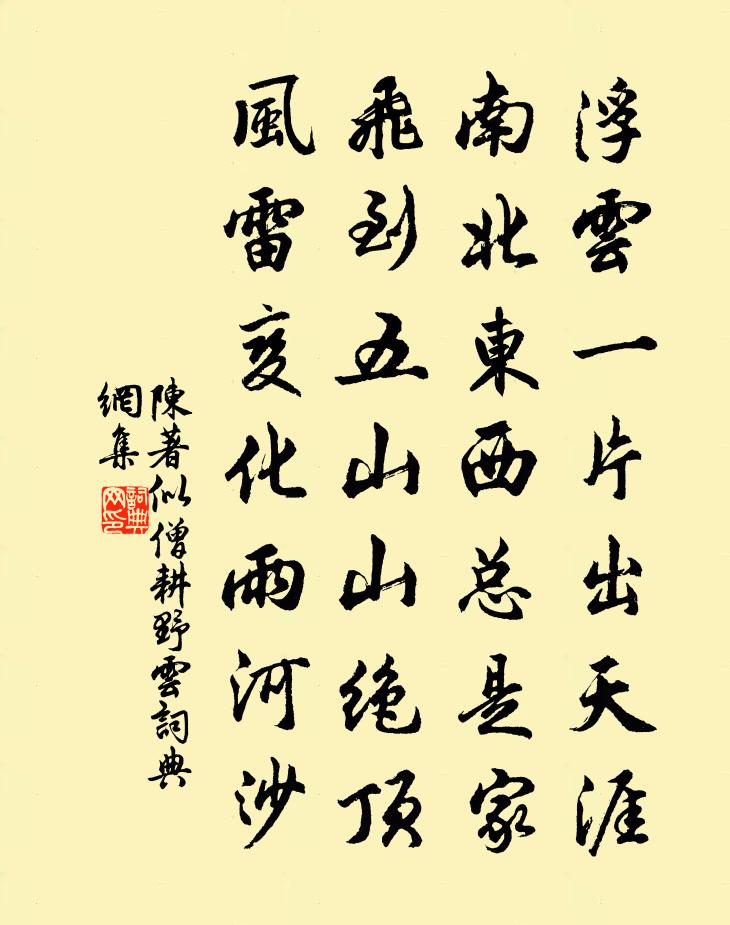 浮雲一片出天涯
南北東西总是家
飛到五山山绝頂
風雷变化雨河沙
陳著似僧耕野雲詞典
網集
詞典
网印